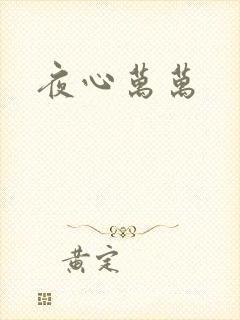 夜心萬萬
黄定